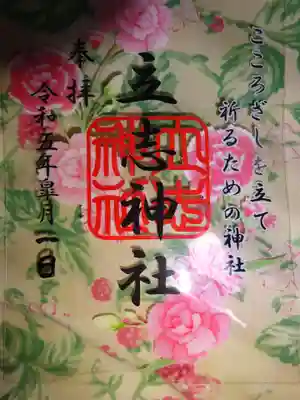 こころざしを立て
祈るための神社
立志神社
立志神社
奉拝
令和五年皐月二日